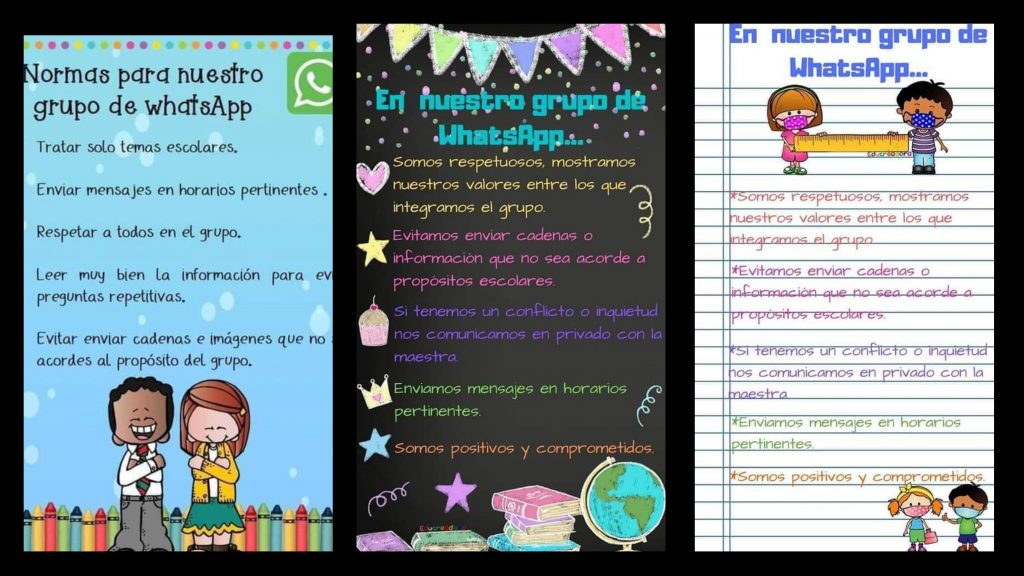 Normas para nuestro
grupo de whatsApp
Tratar solo temas escolares.
Enviar mensajes en horarios pertinentes .
Respetar a todos en el grupo.
Leer muy bien la información para ev
preguntas repetitivas.
Evitar enviar cadenas e imágenes que no
acordes al propósito del grupo.
En nuestro grupo de
WhatsApp...
Somos respetuosos, mostramos
nuestros valores entre los que
integramos el grupo.
Evitamos enviar cadenas o
información que no sea acorde a
propósitos escolares.
Si tenemos un conflicto o inquietud
nos comunicamos en privado con la
maestra.
Enviamos mensajes en horarios
pertinentes.
Somos positivos y comprometidos.
Educreadora
En nuestro grupo de
WhatsApp...
Educreadora
*Somos respetuosos, mostramos
nuestros valores entre los que
integramos el grupo.
*Evitamos enviar cadenas o
información que no sea acorde a
propósitos escolares.
*Si tenemos un conflicto o inquietud
nos comunicamos en privado con la
maestra.
*Enviamos mensajes en horarios
pertinentes.
*Somos positivos y comprometidos.